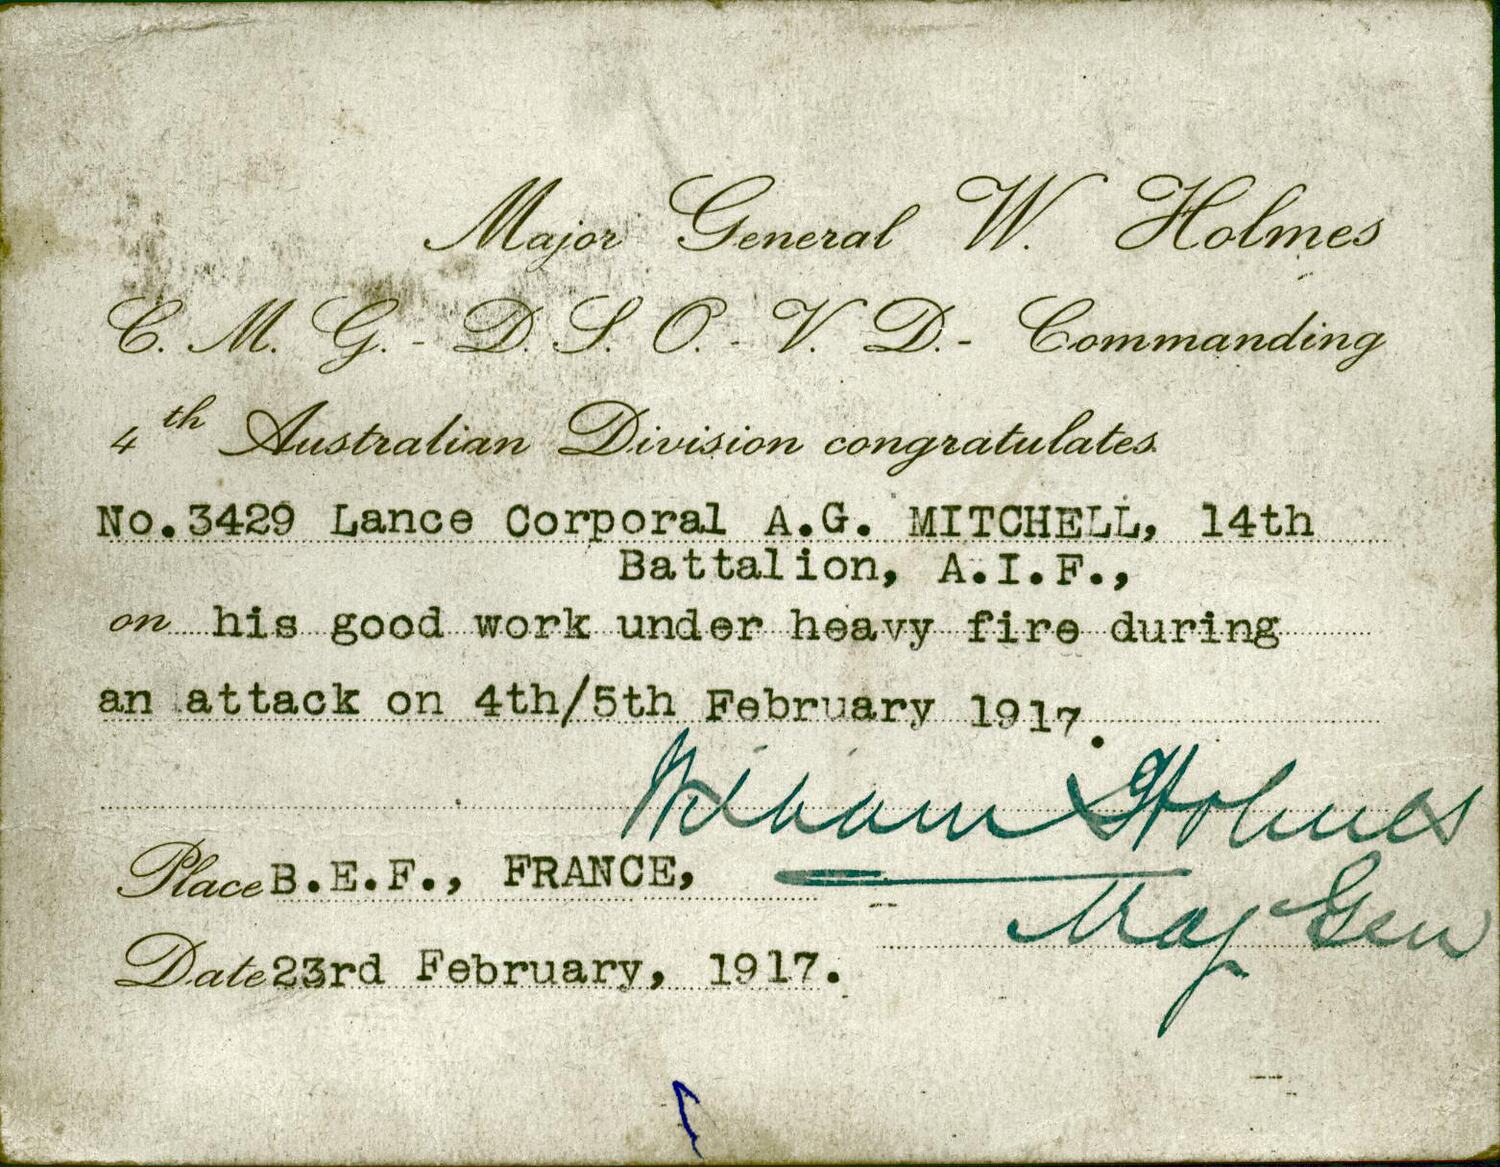 Major General W. Holmes
C. M. G. - D. S. O. - V. D. - Commanding
4th Australian Division congratulates
No.3429 Lance Corporal A.G. MITCHELL, 14th
Battalion, A.I.F.,
on his good work under heavy fire during
an attack on 4th/5th February 1917.
William Holmes
Place B.E.F., FRANCE,
Maj Gen
Date 23rd February, 1917.